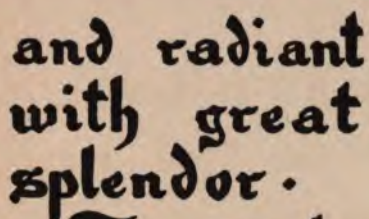 and radiant
with great
splendor.